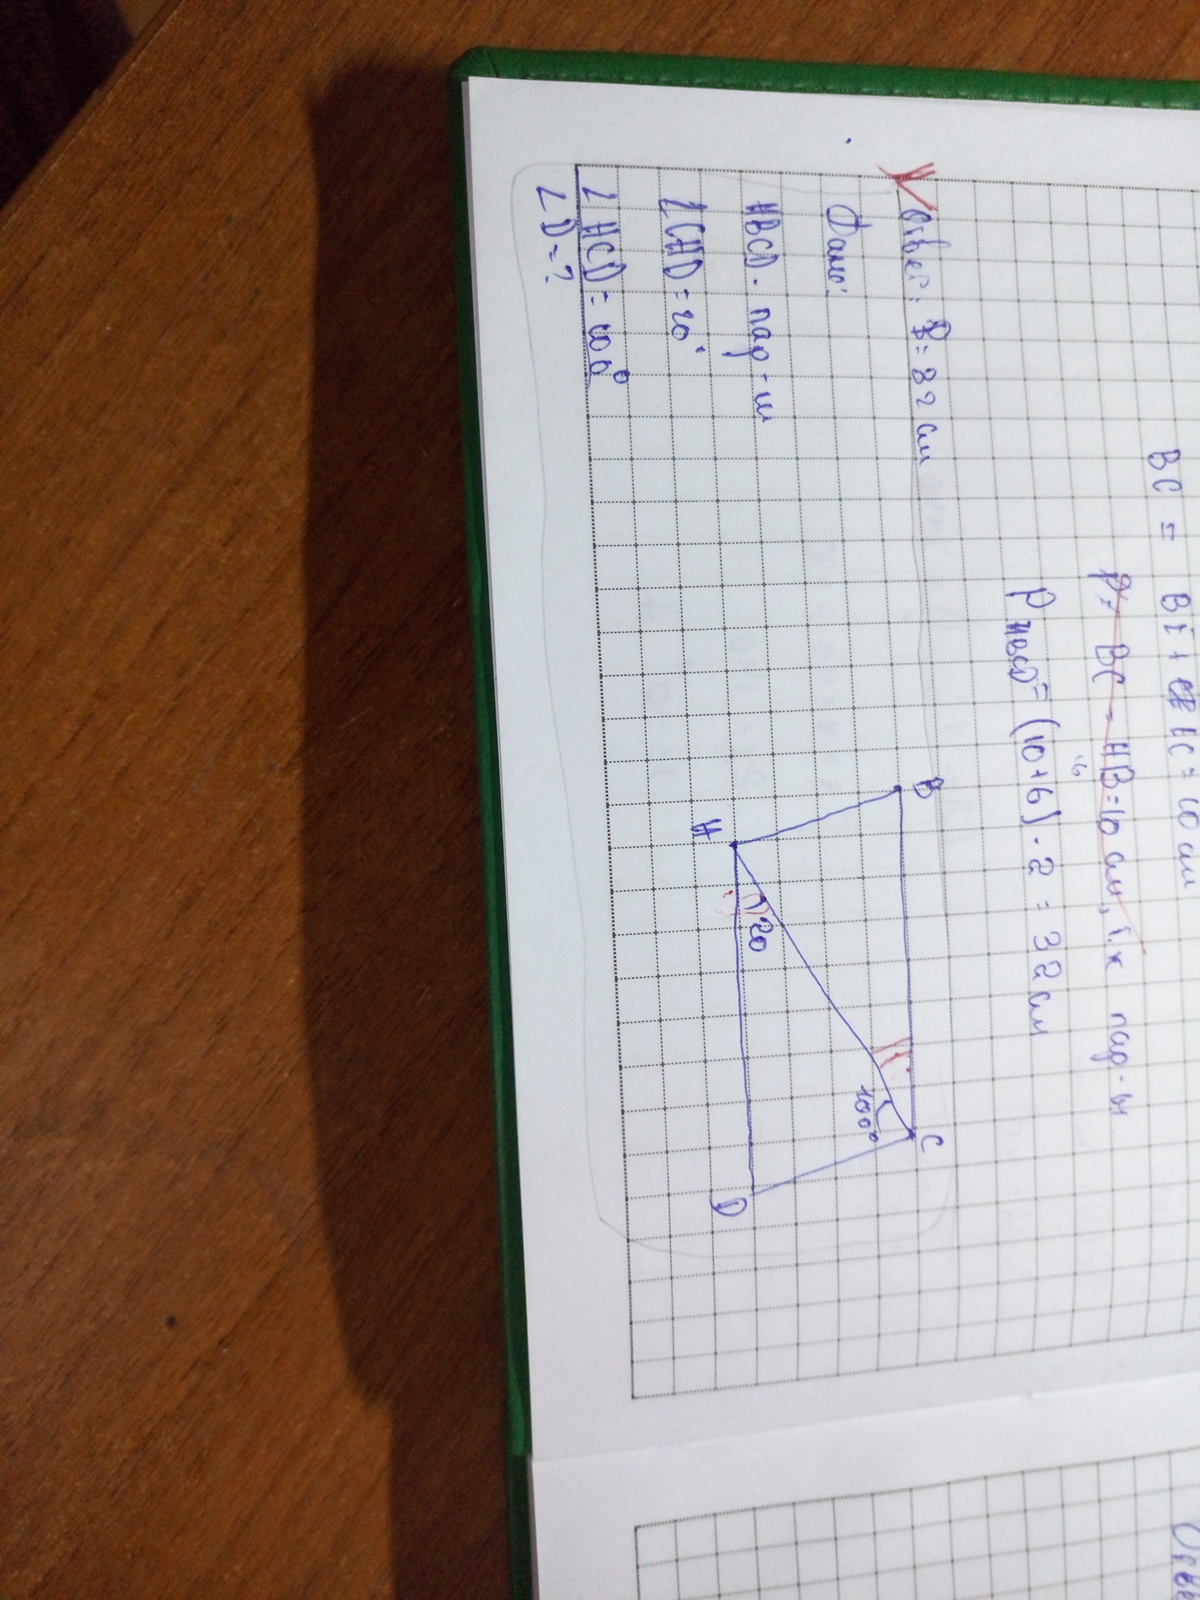 BC = BE + EC = 10 см
P= BC = AB=10 см, т.к пар-м
6
P ABCD = (10+6) · 2 = 32 см
Ответ: P = 32 см
Дано:
ABCD - пар-м
∠CAD = 20°
∠ACD = 100°
∠D = ?
B
C
A
D
20
100°